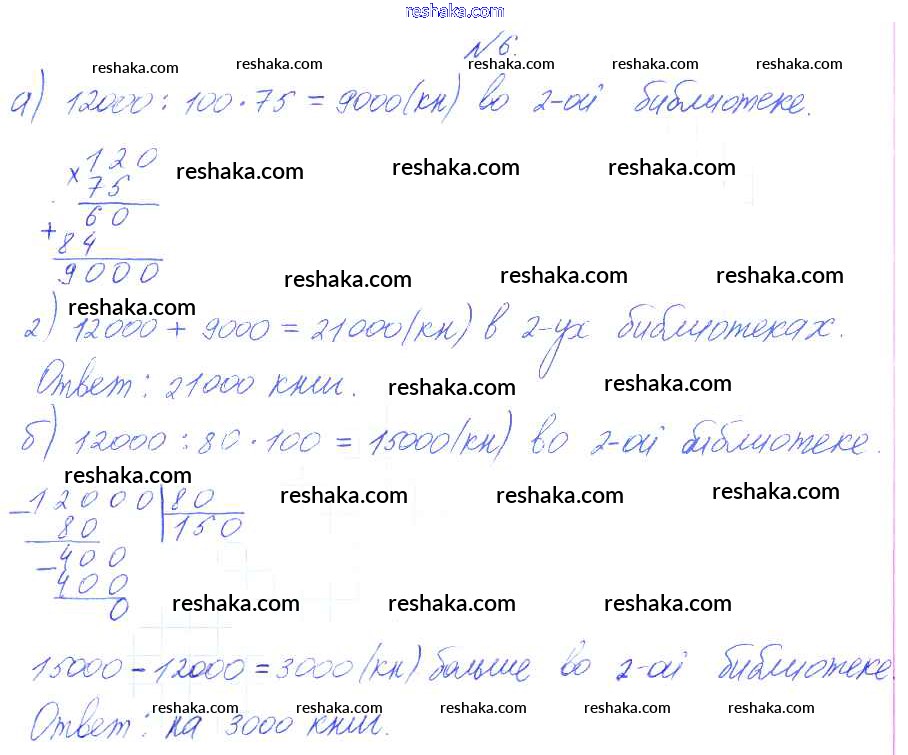 reshaka.com
№6.
reshaka.com reshaka.com reshaka.com reshaka.com reshaka.com
а) 12000 : 100 · 75 = 9000 (кн) во 2-ой библиотеке.
× 120
75
reshaka.com reshaka.com reshaka.com
+ 60
84
9000
reshaka.com reshaka.com reshaka.com
reshaka.com
2) 12000 + 9000 = 21000 (кн) в 2-ух библиотеках.
Ответ: 21000 книг. reshaka.com reshaka.com
б) 12000 : 80 · 100 = 15000 (кн) во 2-ой библиотеке.
reshaka.com reshaka.com reshaka.com reshaka.com
− 12000 | 80
80 | 150
− 400
400
0
reshaka.com reshaka.com reshaka.com
15000 − 12000 = 3000 (кн) больше во 2-ой библиотеке.
reshaka.com reshaka.com reshaka.com reshaka.com reshaka.com
Ответ: на 3000 книг.